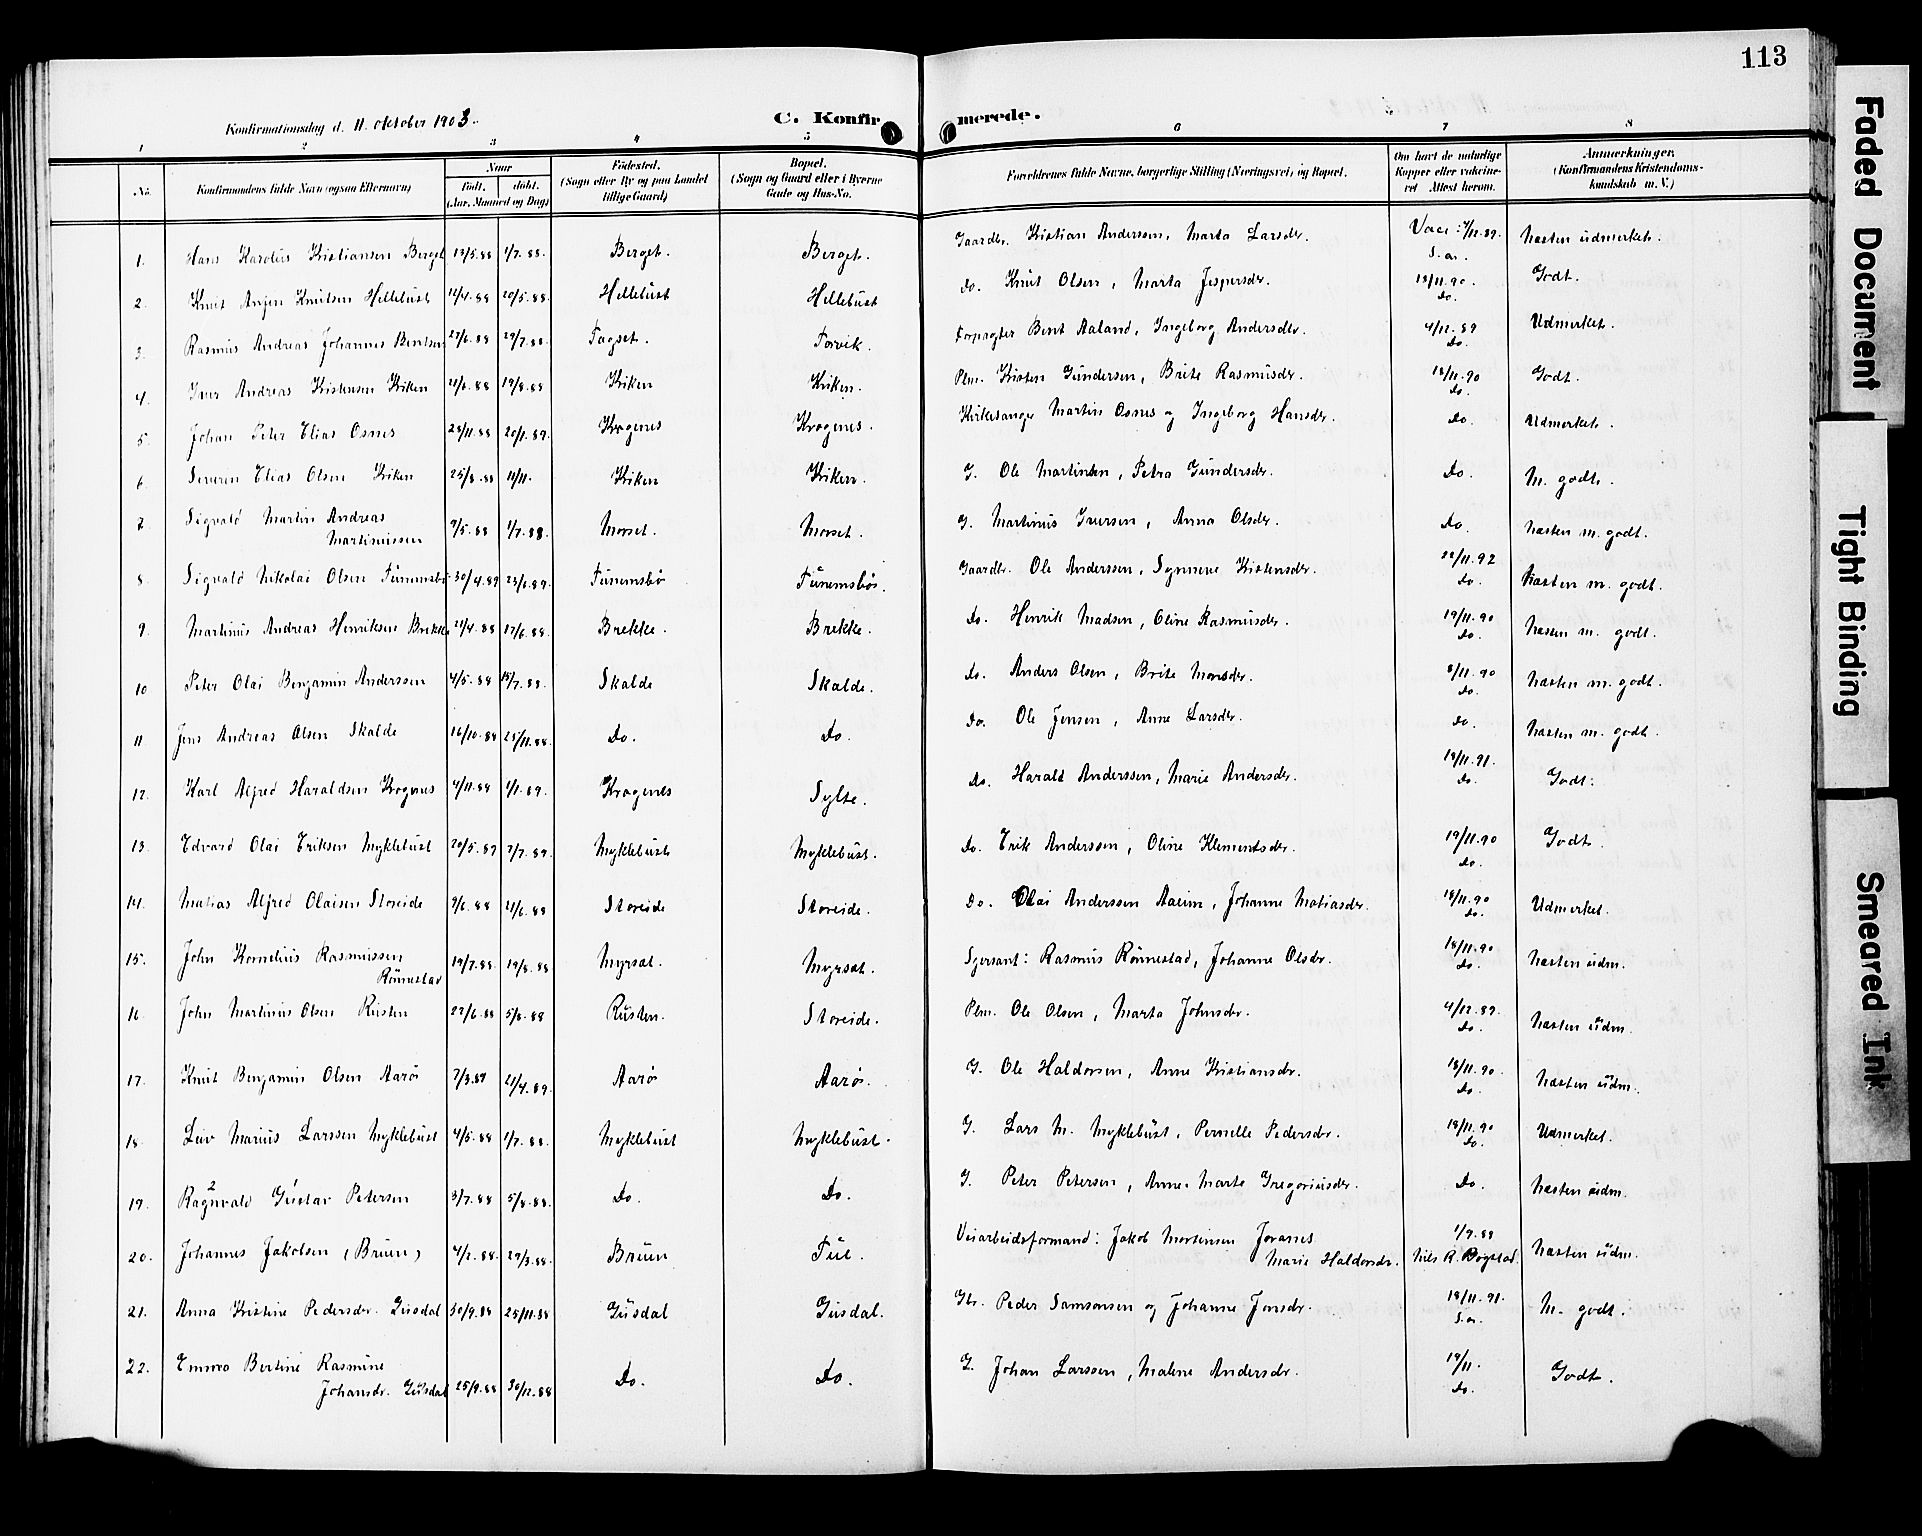 113
Konfirmationsdag d. 11. oktober 1903.
C. Konfirmerede.
1 2 3 4 5 6 7 8
No.
Konfirmandens fulde Navn (ogsaa Efternavn)
Naar
født. døbt.
(Aar, Maaned og Dag)
Fødested.
(Sogn eller By og paa Landet
tillige Gaard)
Bopæl.
(Sogn og Gaard eller i Byerne
Gade og Hus-No.
Forældrenes fulde Navne, borgerlige Stilling (Næringsvei) og Bopæl.
Om havt de naturlige
Kopper eller vakcine-
ret Attest herom.
Anmærkninger.
(Konfirmandens Kristendoms-
kundskab m. V.)
1. Hans Karolius Kristiansen Berget 13/5.88 1/7.88. Berget. Berget. Gaardbr. Kristian Anderssen, Marta Larsdr. Vacc: 4/12.89. S.a. Næsten udmerket.
2. Knut Anjen Knutsen Hellebust 12/4.88 20/5.88. Hellebust Hellebust do. Knut Olsen, Marta Jespersdr. 18/11.90. do. Godt.
3. Rasmus Andreas Johannes Bentsen 27/6.88 29/7.88. Fagset. Forvik. Forpagter Bent Aaland, Ingeborg Andersdtr. 4/12.89 do. Udmerket.
4. Iver Andreas Kristensen Kriken 21/6.88 19/8.88 Kriken Kriken. Plm. Kristen Gundersen, Brite Rasmusdr. 18/11.90 do. Godt.
5. Johan Peter Elias Osnes 28/11.88 20/1.89. Krogenes Krogenes. Kirkesanger Martin Osnes og Ingeborg Hansdr. do. Udmerket.
6. Severin Elias Olsen Kriken 25/8.88 11/11. Kriken Kriken. G. Ole Martinsen, Petra Gundersdr. do. M. godt.
7. Sigvald Martin Andreas
Martinussen 9/5.88 1/7.88. Morset. Morset. G. Martinus Iversen, Anna Olsdr. do. Næsten m. godt.
8. Sigvald Nikolai Olsen Furumsbø 30/4.89 23/6.89. Furumsbø Furumsbø. Gaardbr. Ole Anderssen, Synneve Kristensdr. 22/11.92 do. Næsten m. godt.
9. Martinus Andreas Henriksen Brekke 22/4.88 17/6.88. Brekke. Brekke. do. Henrik Madsen, Oline Rasmusdr. 19/11.90 do. Næsten m. godt.
10 Peter Olai Benjamin Anderssen 4/5.88 15/7.88. Skalde Skalde. do. Anders Olsen, Brite Monsdr. 8/11.90 do. Næsten m. godt.
11 Jens Andreas Olsen Skalde 16/10.88 25/11.88. Do. Do. do. Ole Jensen, Anne Larsdr. do. Næsten m. godt.
12. Karl Alfred Haraldsen Krogenes 4/11.88 1/1.89. Krogenes Sylte. do. Harald Anderssen, Marie Andersdr. 18/11.91. do. Godt.
13. Edvard Olai Eriksen Myklebust 20/5.89 7/7.89. Myklebust Myklebust. do. Erik Anderssen, Oline Klementsdr. 19/11.90 do. Godt.
14. Matias Alfred Olaisen Storeide 9/6.88 21/6.88 Storeide Storeide. do. Olai Anderssen Aaeim, Johanne Matiasdr. 18/11.90 do. Udmerket.
15. John Kornelius Rasmussen
Rönnestad 19/7.88. 19/8.88 Myrsæt. Myrsæt. Sgersant: Rasmus Rönnestad, Johanne Olsdr. 18/11.90 do. Næsten udm.
16 John Martinus Olsen Rusten 22/6.88 5/8.88 Rusten. Storeide. Plm. Ole Olsen, Marta Johnsdr. 4/12.89. do. Næsten udm.
17. Knut Benjamin Olsen Aarö 7/3.89 21/4.89. Aarö Aarö. G. Ole Haldorsen, Anne Kristiansdr. 18/11.90. do. Næsten udm.
18. Leiv Marius Larssen Myklebust 4/5.88 1/7.88. Myklebust Myklebust. G. Lars M. Myklebust, Pernelle Pedersdr. 18/11.90 do. Udmerket.
19. Ragnvald Gustav Petersen 3/7.88 5/8.88. Do. Do. G. Peter Petersen, Anne Marta Gregoriusdr. do. Næsten udm.
20. Johannes Jakobsen (Bruen) 4/2.88. 29/3.88. Bruen Fue. Veiarbeidsformand: Jakob Mortensen Joranes
Marie Haldorsdr. 1/9.88 Nils R. Bogstad. Næsten udm.
21. Anna Kristine Pedersdr. Gusdal 30/9.88 25/11.88 Gusdal Gusdal. Gbr. Peder Samsonsen og Johanne Jonsdr. 18/11.91. S.a. M. godt.
22. Emma Bertine Rasmine
Johansdr. Gusdal 25/9.88 30/12.88 Do. Do. G. Johan Larssen, Malene Andersdr. 19/11. do. Godt.
Faded Document
Tight Binding
Smeared Ink